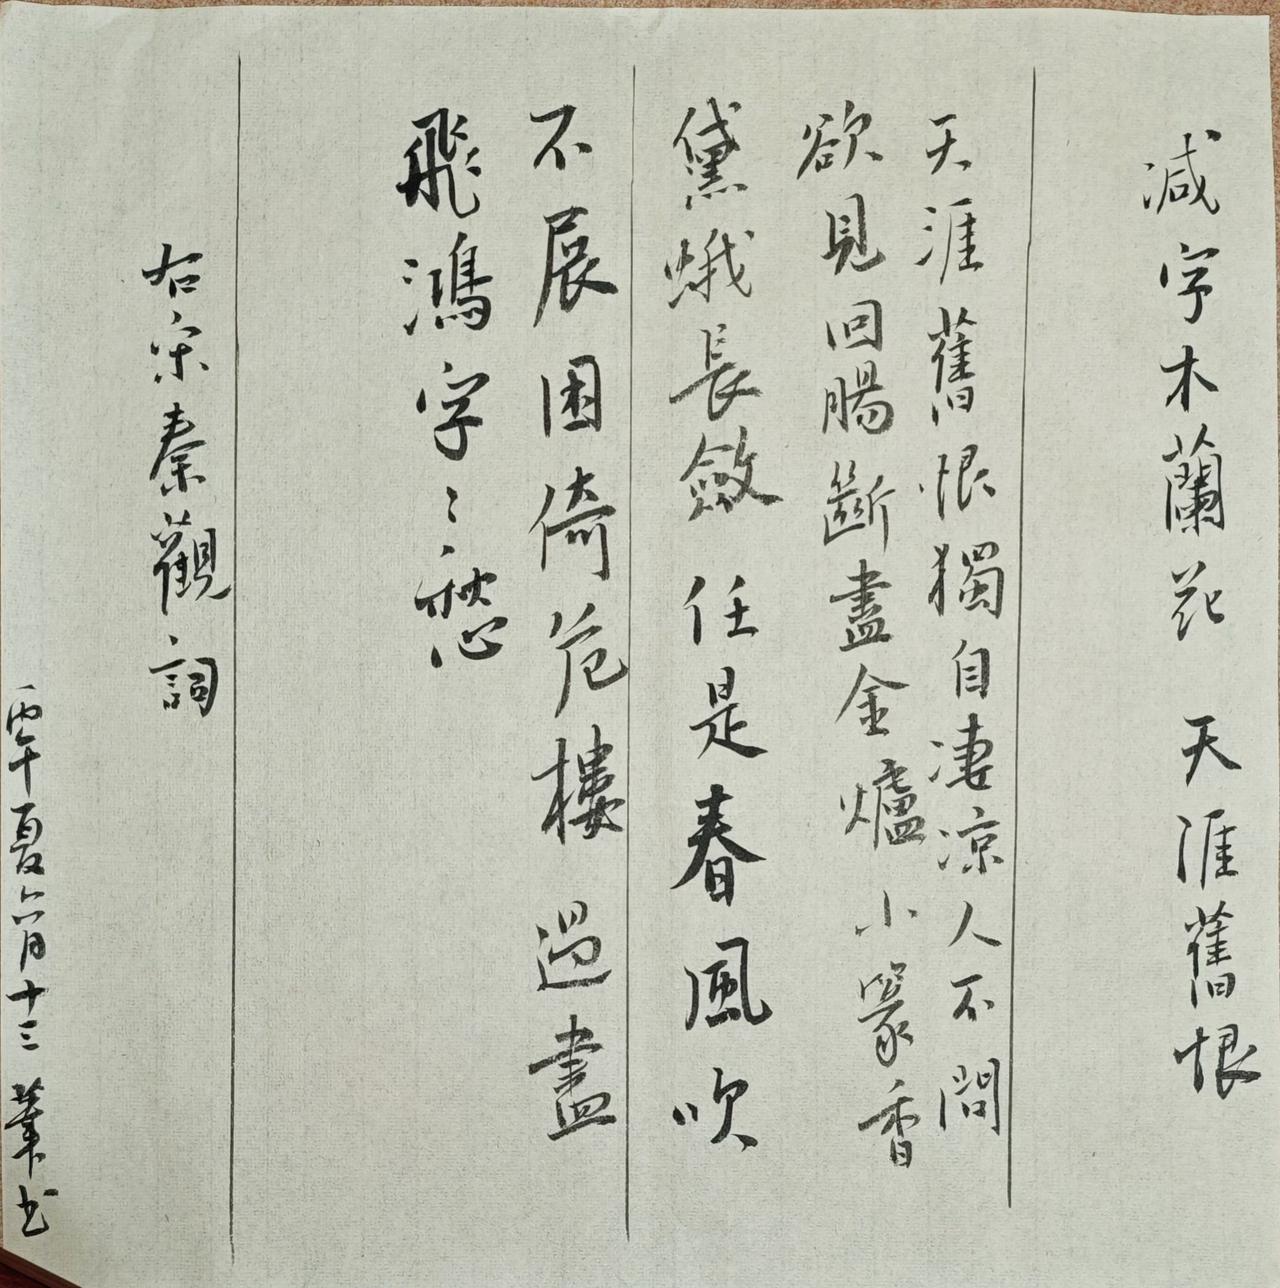 減字木蘭花 天涯舊恨
天涯舊恨獨自凄涼人不問
欲見回腸斷盡金爐小篆香
黛蛾長斂任是春風吹
不展困倚危樓過盡
飛鴻字〻愁
右宋秦觀詞
丙午夏六月十三 葦书